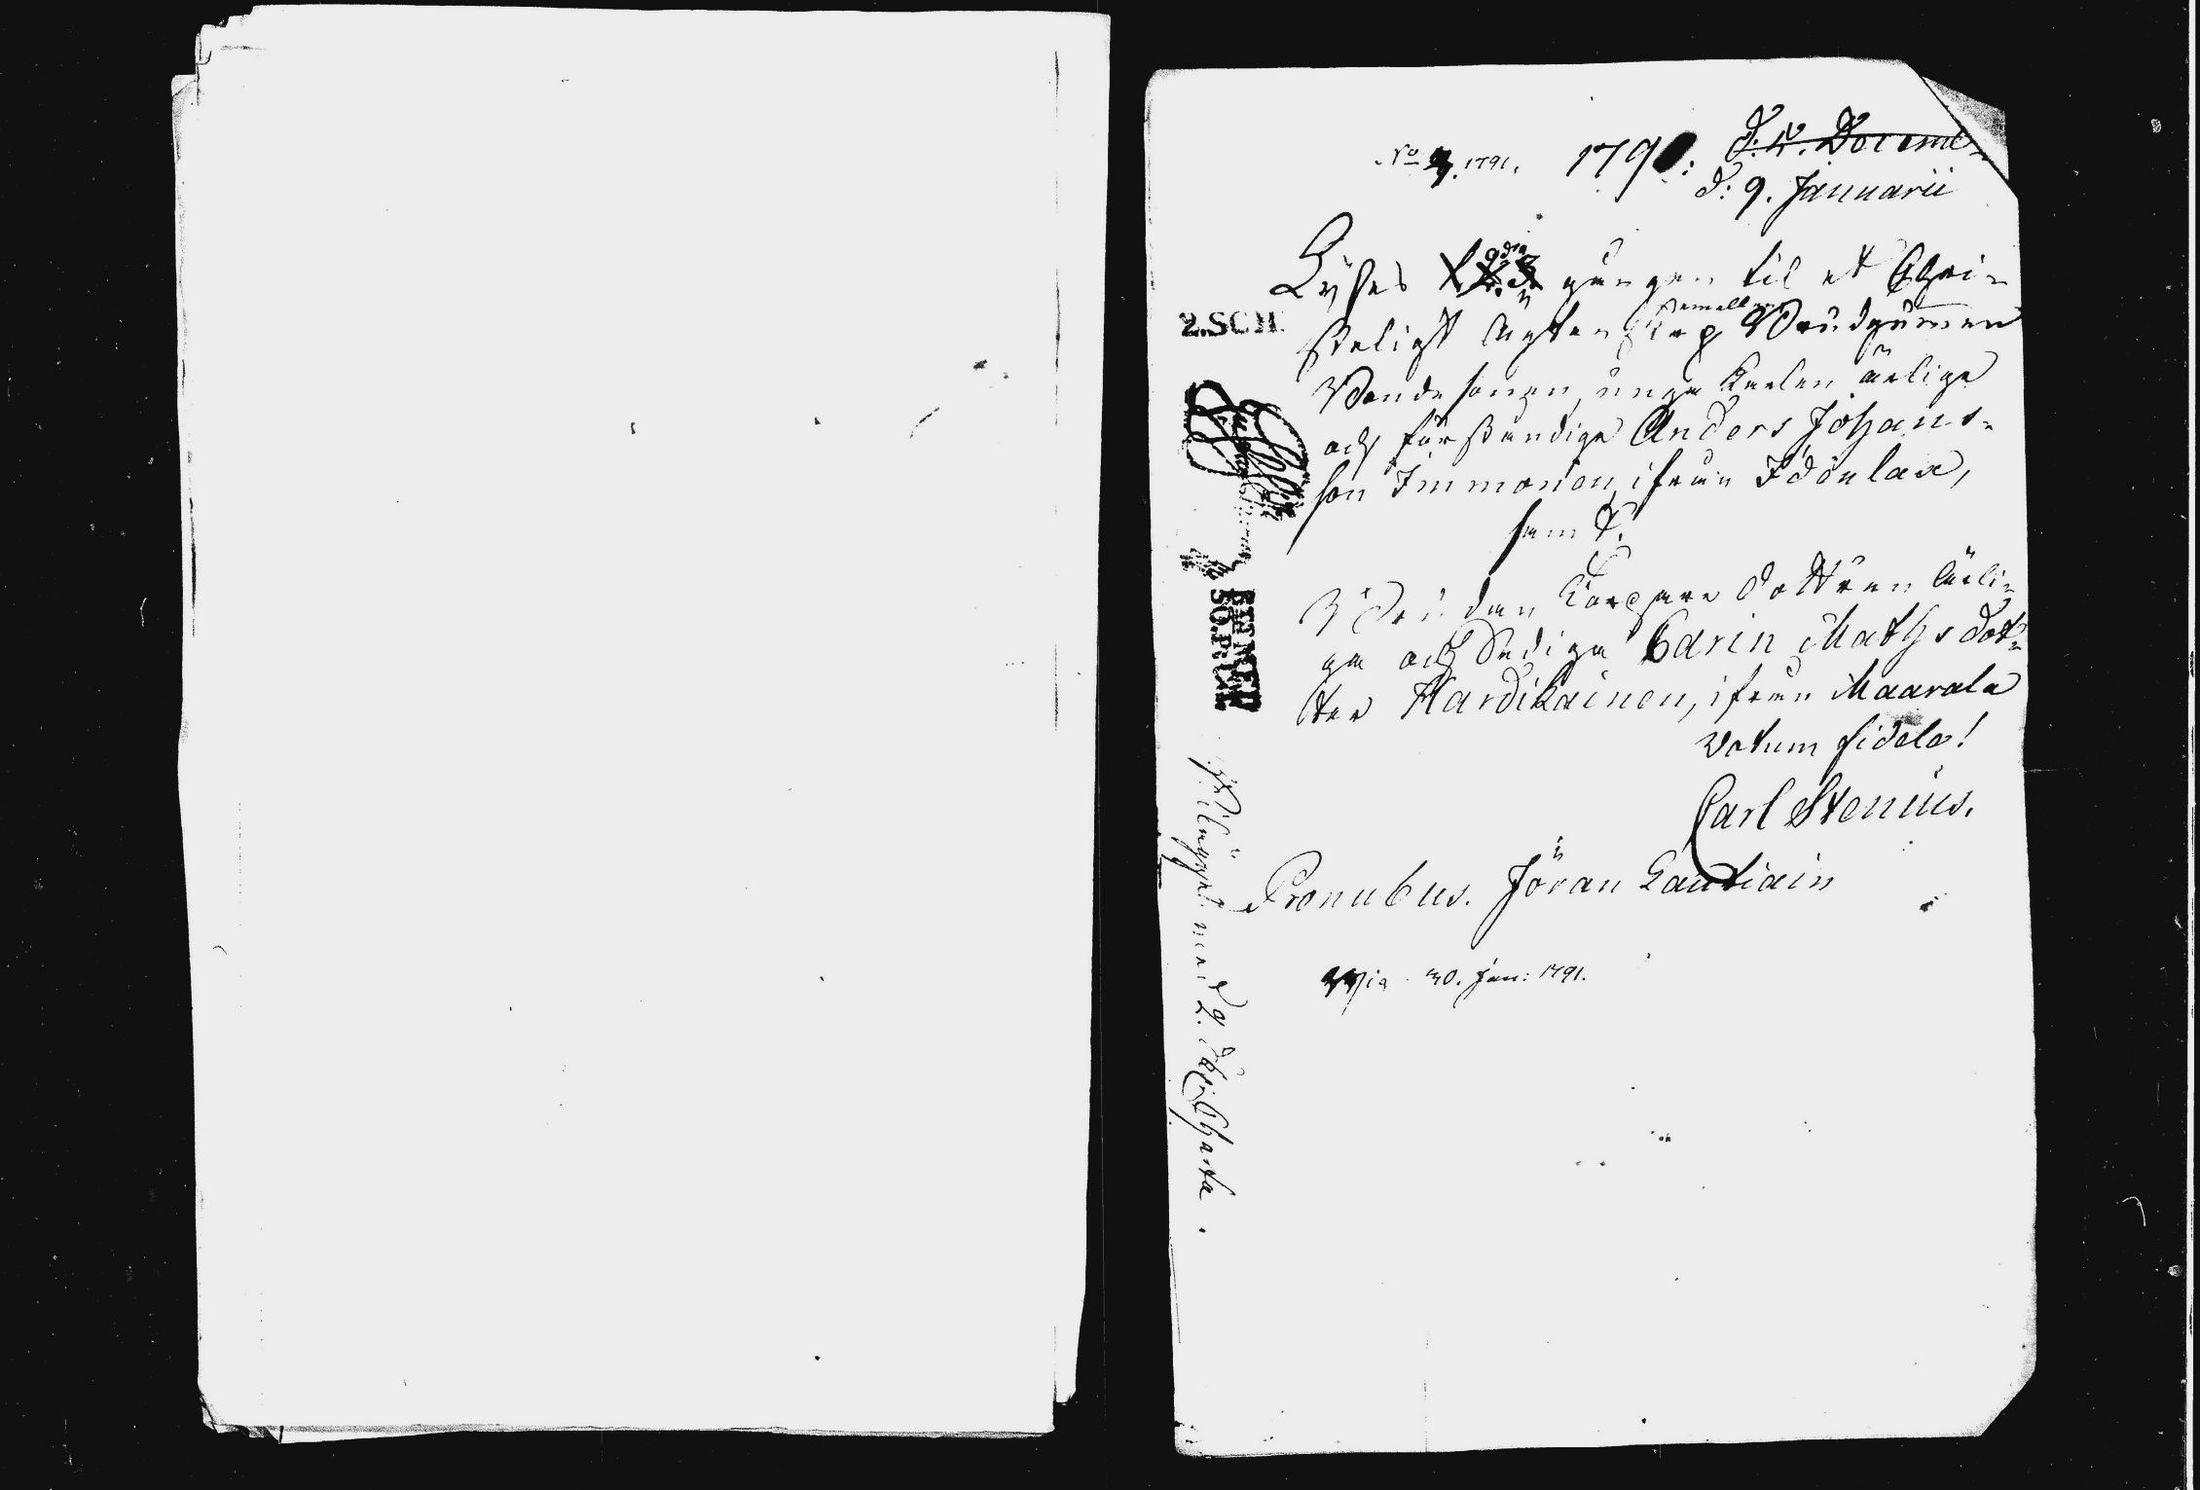 No 7. 1791. 1790: D. 4. Decemb
d: 9. Januarii
Lyses gången til et Chri-
steligt Ägtenskap emellan Brudgummen
Bondesonen, unga Karlen ärlige
och förståndige Anders Johans-
son Immonen, ifrån Idönlax,
samt
Bruden Torpare dottren ärli-
ga och Sediga Carin Mathsdot-
ter Hardikainen, ifrån Maarala
Votum fidele!
Carl Stenius.
Pronubus. Jöran Lautiain
30. Jan: 1791.
2.SCH.
Belagd med 2. Charta.